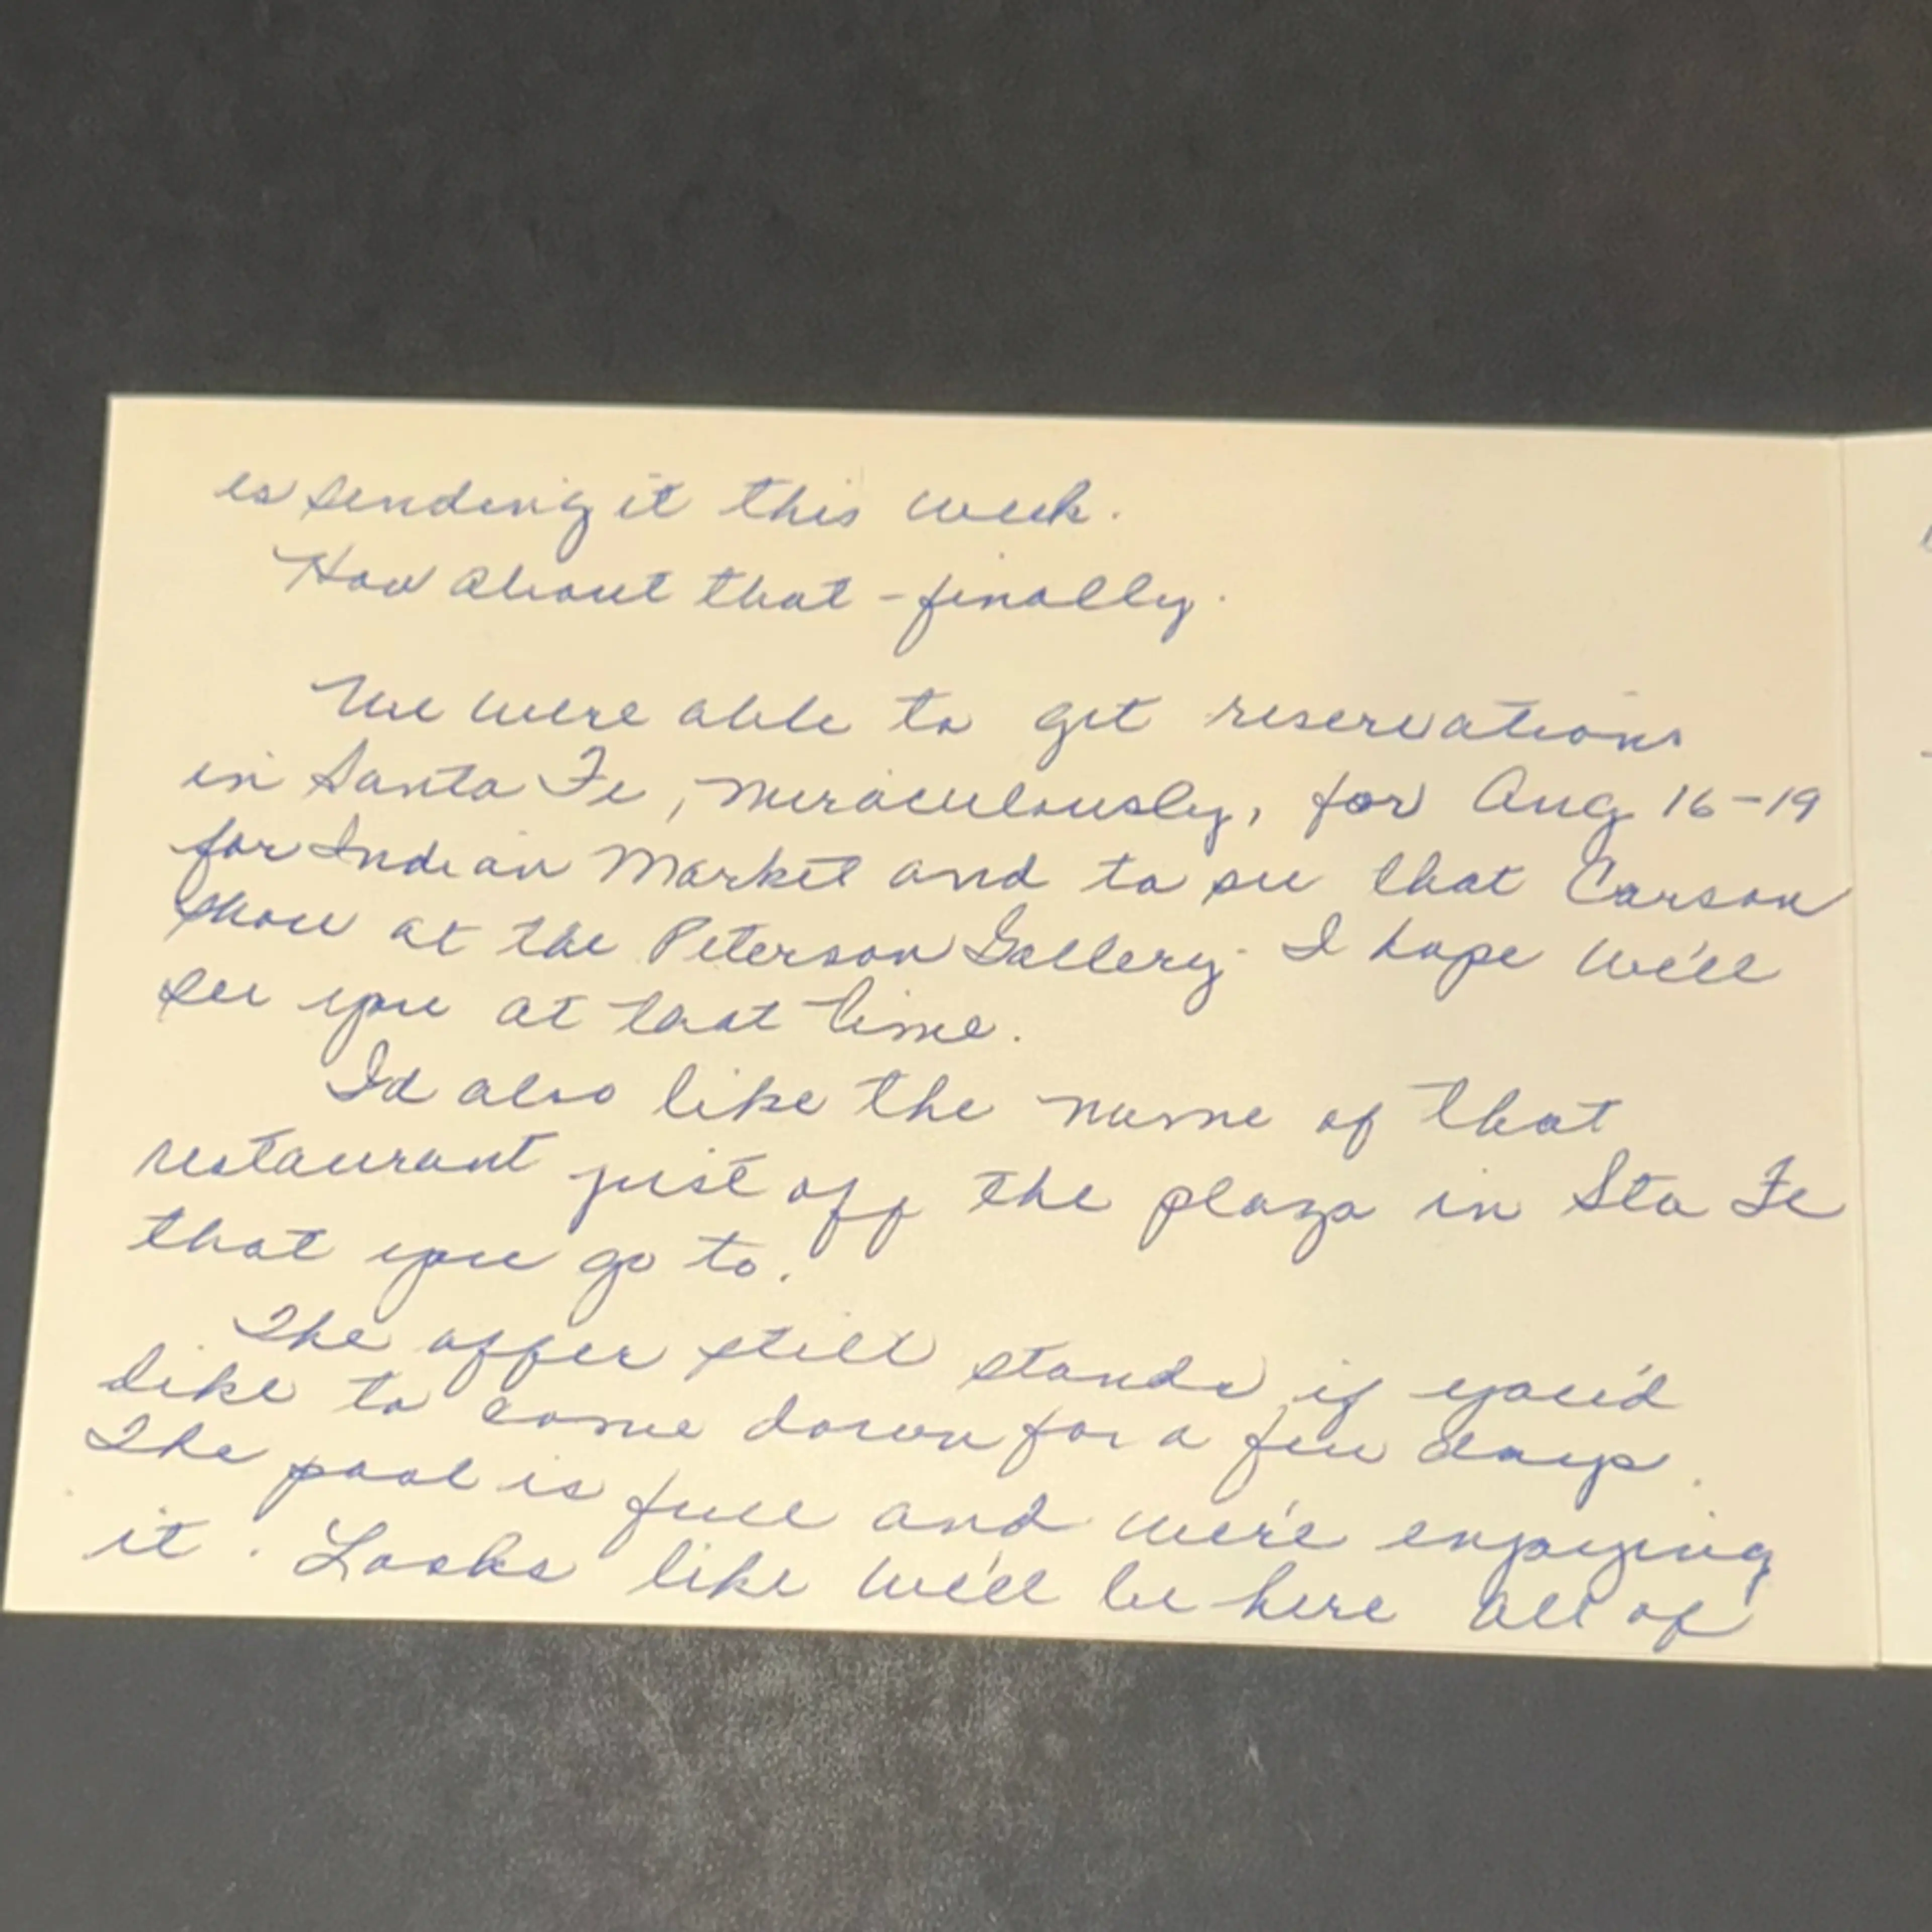 is sending it this week.
How about that - finally.
We were able to get reservations
in Santa Fe, miraculously, for Aug 16-19
for Indian Market and to see that Carson
show at the Peterson Gallery. I hope we'll
see you at that time.
I'd also like the name of that
restaurant just off the plaza in Sta Fe
that you go to.
The offer still stands if you'd
like to come down for a few days.
The pool is full and we're enjoying
it. Looks like we'll be here all of